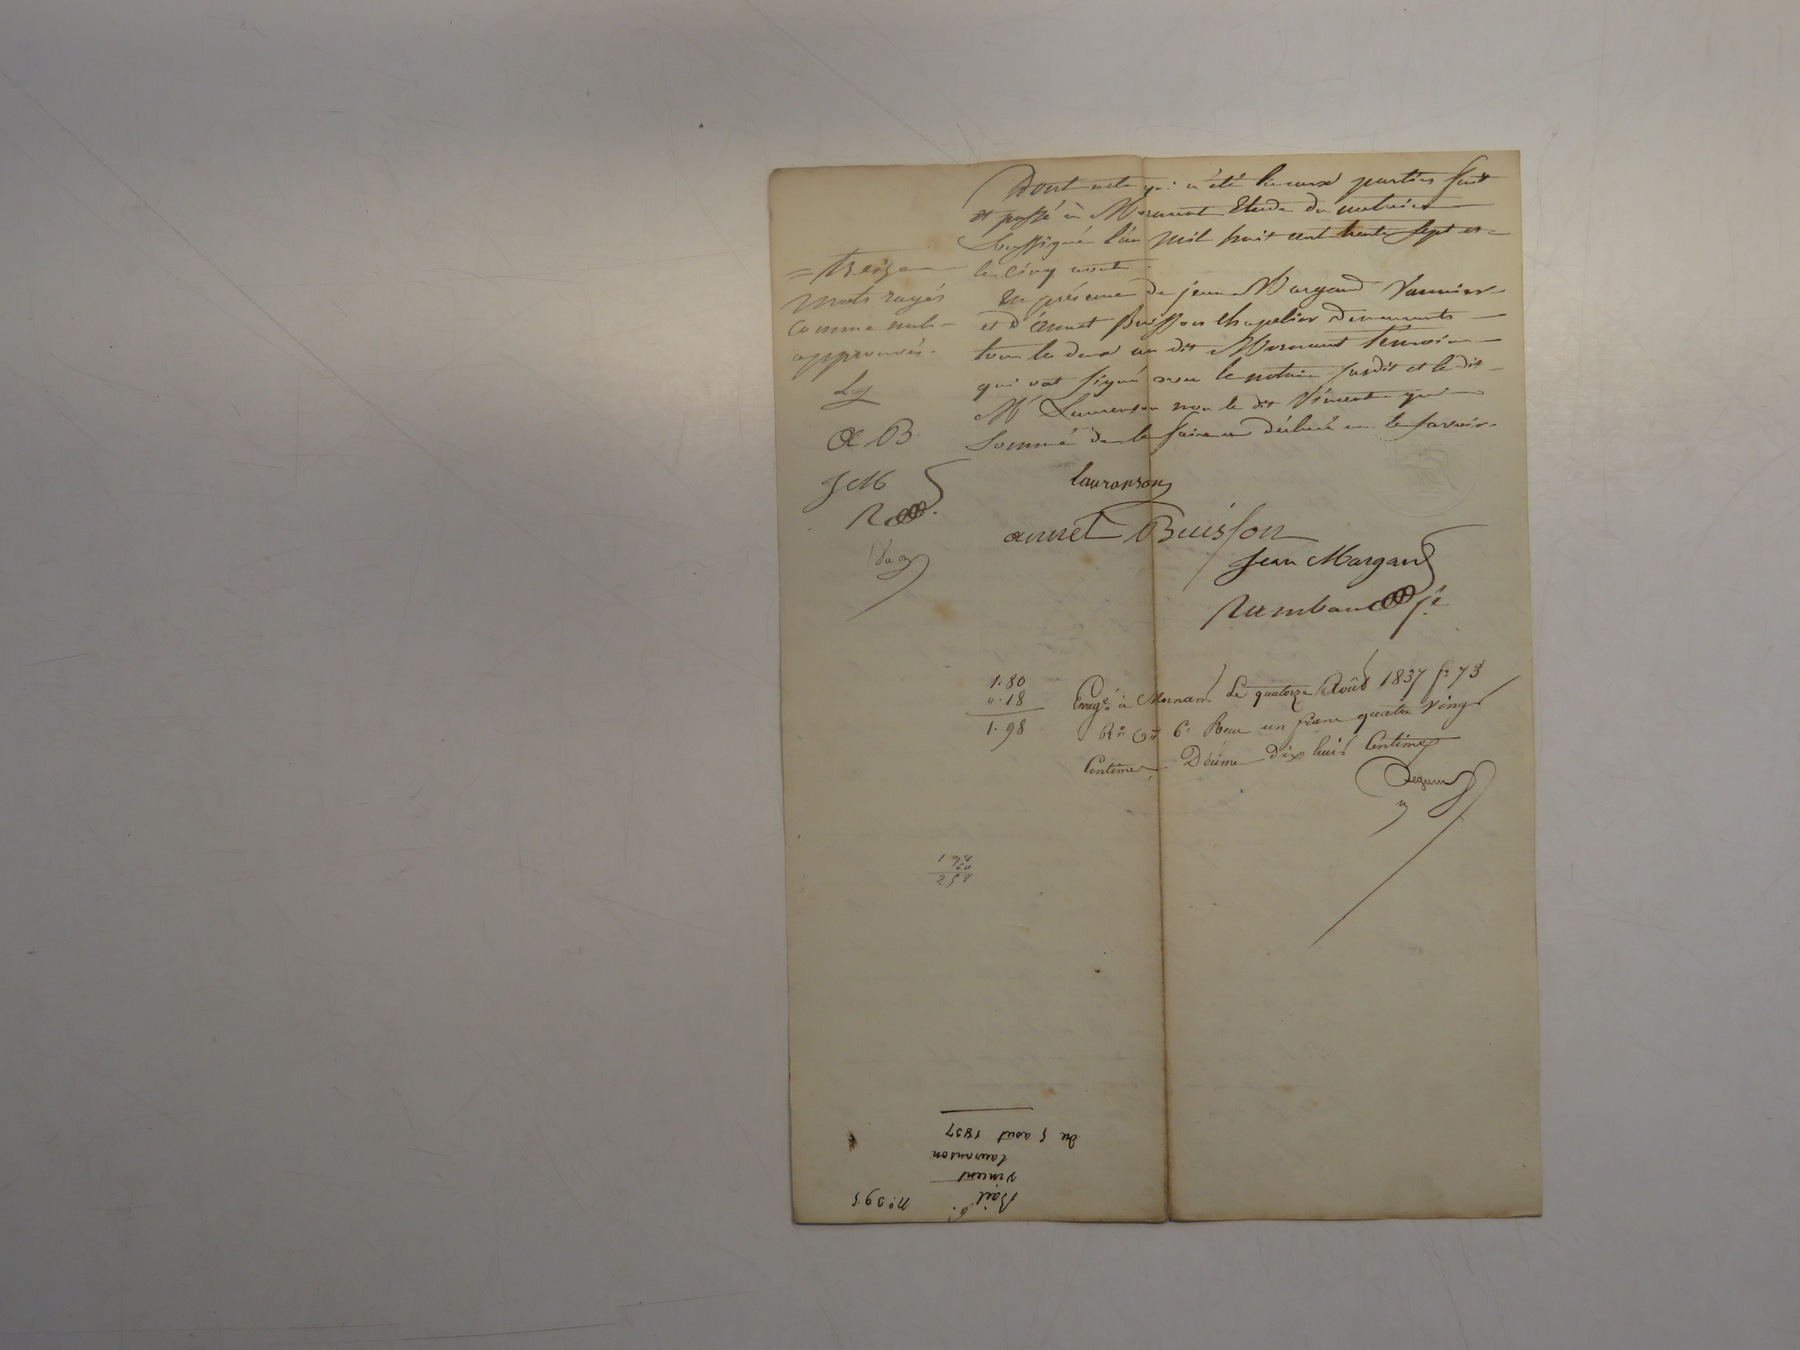 Dont acte qui a été lu aux parties fait
et passé à Mornant Etude du notaire
soussigné l'an mil huit cent trente sept et
le cinq août.
En présence de jean Margand Vannier
et d'annet Buisson chapelier demeurants
tous les deux au dit Mornant temoins
qui ont signé avec le notaire susdit et le dit
Mr Lauranson non le dit Vincent qui
sommé de le faire a déclaré ne le savoir.
= treize
mots rayés
comme nuls
approuvés.
Lg
a B
J M
R
lauranson
annet Buisson
jean Margand
1.80
0.18
1.98
Enregé à Mornant Le quatorze Août 1837 fo 73
Ro Ce 6e Reçu un franc quatre vingt
Centimes. Décime dix huit Centimes
198
60
258
No 395
Bail 6.
Vincent
lauranson
du 5 août 1837